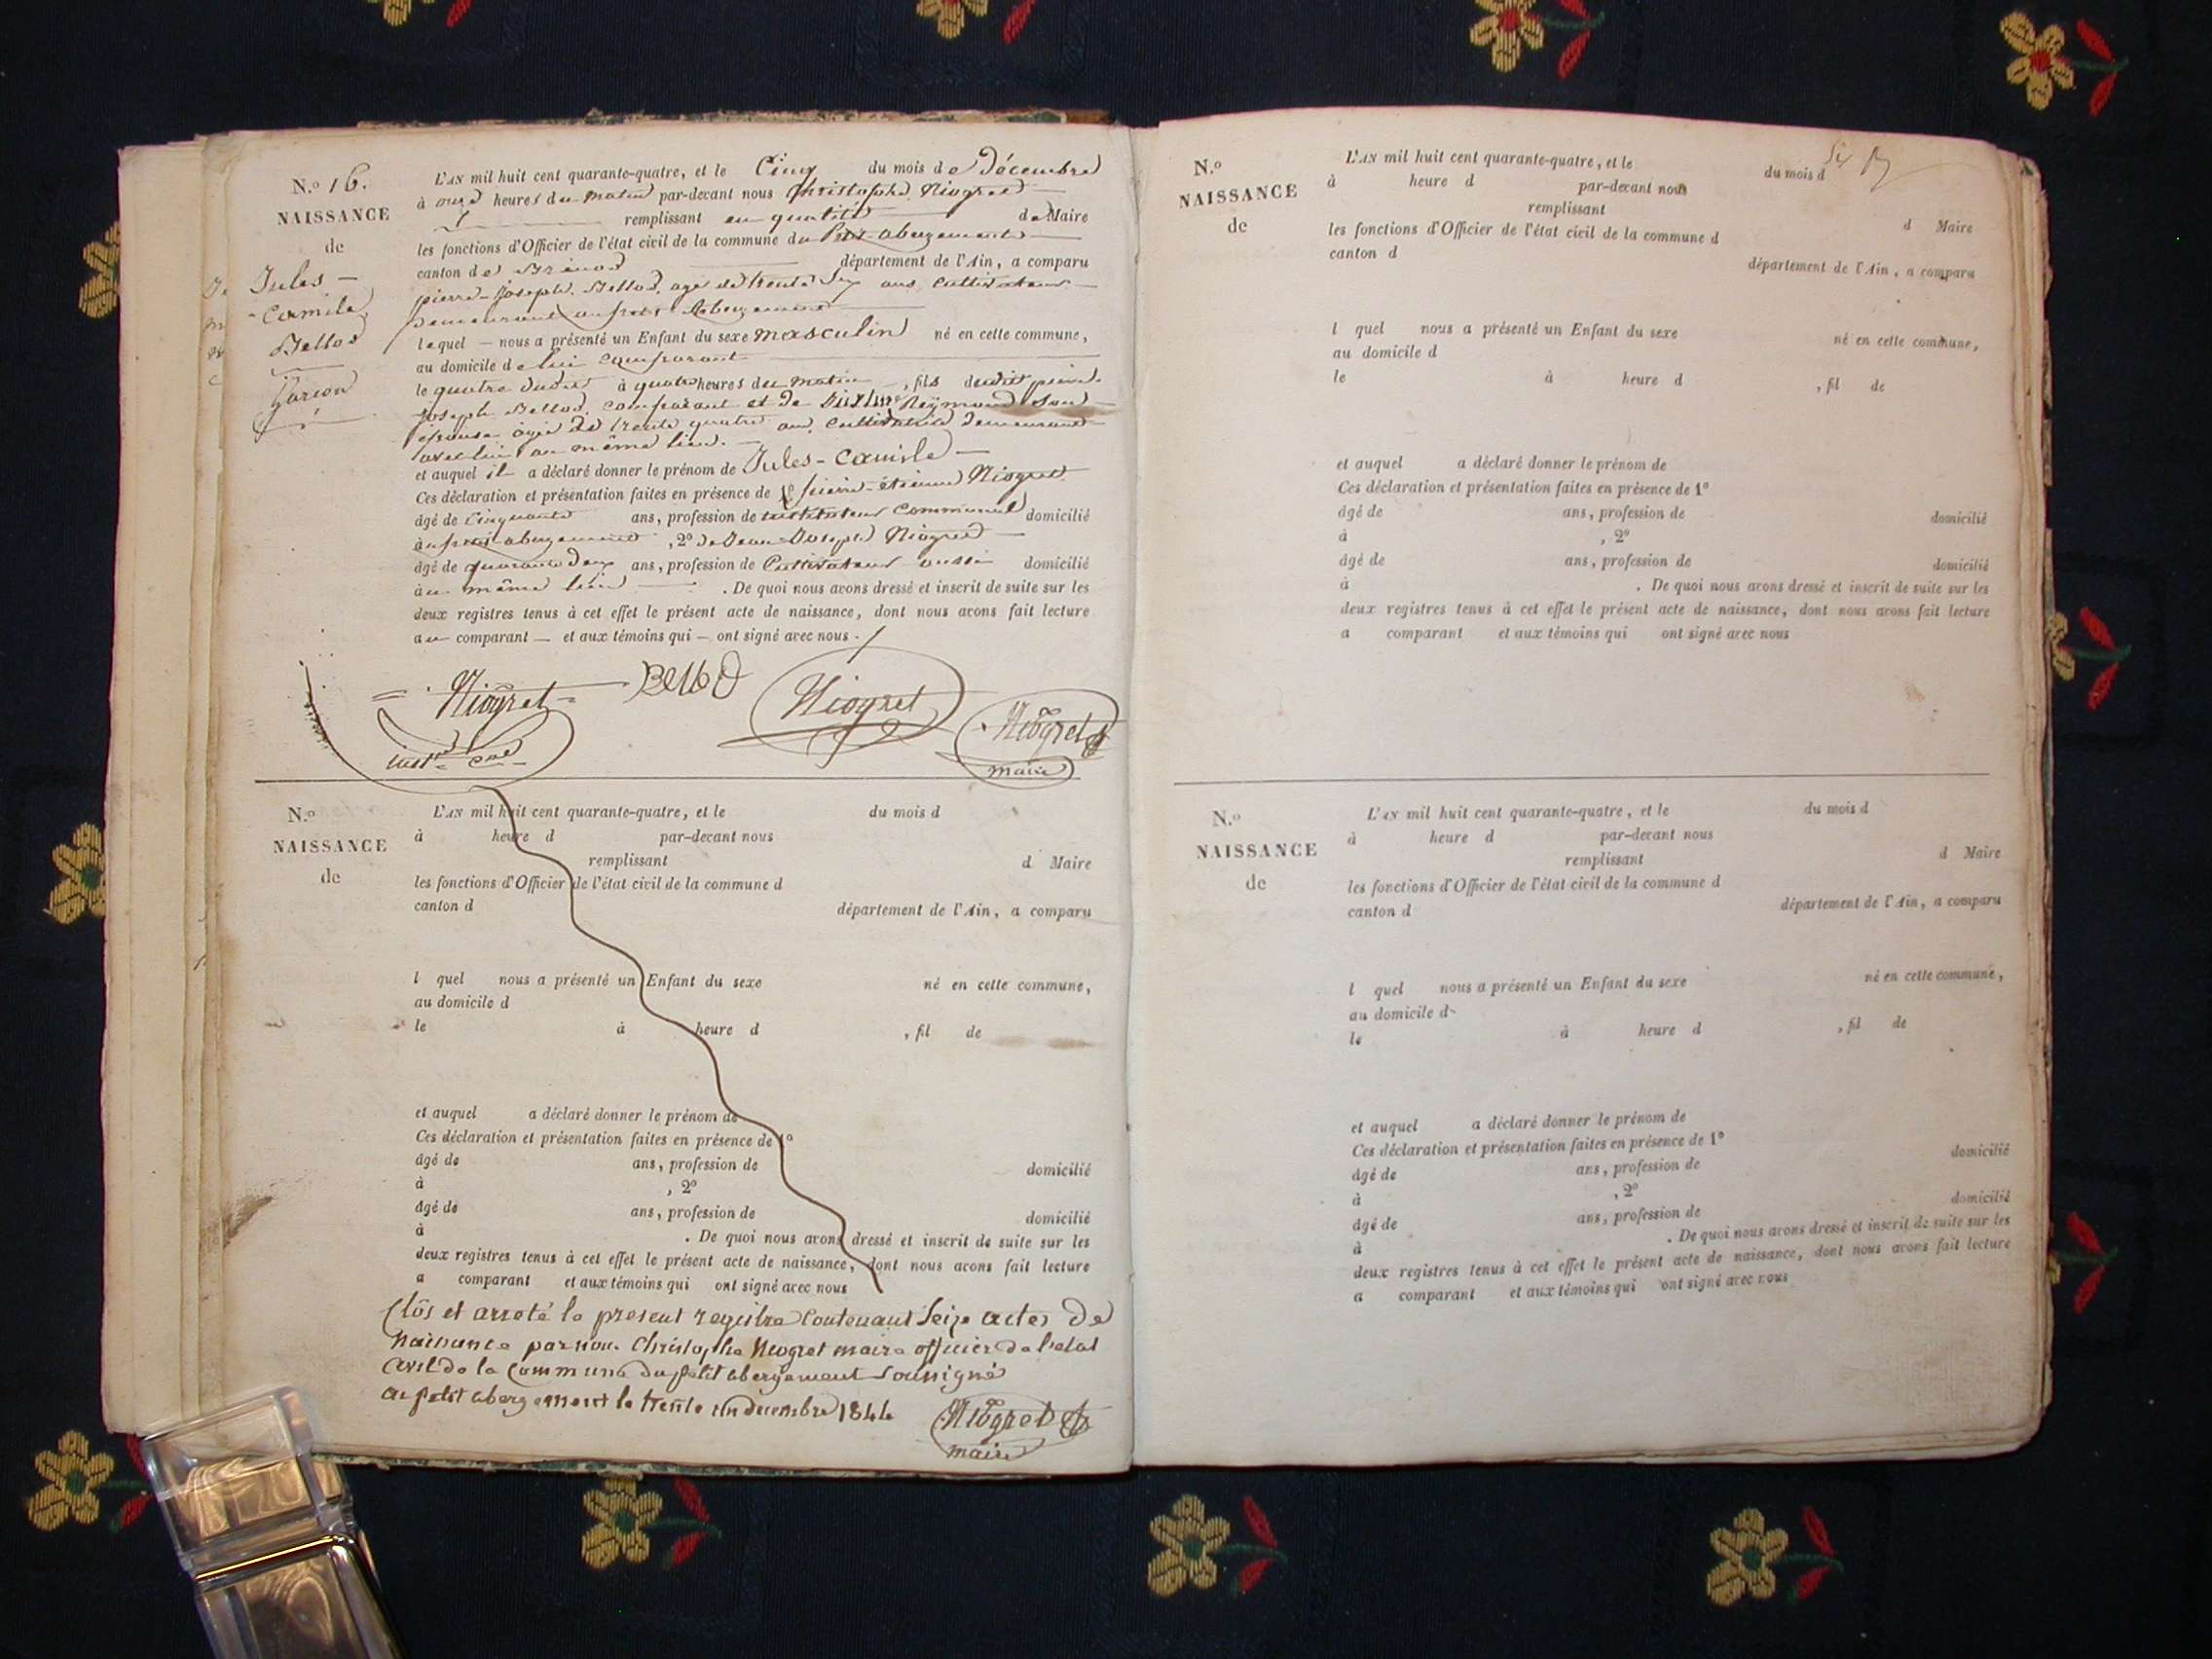 N.º 16.
NAISSANCE
de
Jules -
- Camile
Bellod
Garcon
L'AN mil huit cent quarante-quatre, et le Cinq du mois de Décembre
à onze heures du matin par-devant nous Christophe Niogret
remplissant en qualité de Maire
les fonctions d'Officier de l'état civil de la commune du Petit abergement
canton de Brénod département de l'Ain, a comparu
pierre-joseph Bellod, agé de trente six ans, cultivateur
Demeurant au petit Abergement
lequel — nous a présenté un Enfant du sexe masculin né en cette commune,
au domicile de lui comparant
le quatre dudit à quatre heures du matin, fils dudit pierre
joseph Bellod, comparant et de Reymond son
épouse âgée de trente quatre ans, cultivatrice demeurant
avec lui au même lieu. —
et auquel il a déclaré donner le prénom de Jules - Camile —
Ces déclaration et présentation faites en présence de 1º pierre-étienne Niogret
âgé de cinquante ans, profession de instituteur communal domicilié
au petit abergement, 2º de Jean Joseph Niogret
âgé de quarante deux ans, profession de Cultivateur aussi domicilié
au même lieu. De quoi nous avons dressé et inscrit de suite sur les
deux registres tenus à cet effet le présent acte de naissance, dont nous avons fait lecture
au comparant — et aux témoins qui — ont signé avec nous.
Niogret BelloD Niogret Niogret
maire
N.º
NAISSANCE
de
L'AN mil huit cent quarante-quatre, et le du mois d
à heure d par-devant nous
remplissant d Maire
les fonctions d'Officier de l'état civil de la commune d
canton d département de l'Ain, a comparu
l quel nous a présenté un Enfant du sexe né en cette commune,
au domicile d
le à heure d , fil de
et auquel a déclaré donner le prénom de
Ces déclaration et présentation faites en présence de 1º
âgé de ans, profession de domicilié
à , 2º
âgé de ans, profession de domicilié
à . De quoi nous avons dressé et inscrit de suite sur les
deux registres tenus à cet effet le présent acte de naissance, dont nous avons fait lecture
a comparant et aux témoins qui ont signé avec nous
Clôs et arreté le present registre Contenant Seize actes de
Naissance par nous Christophe Niogret maire officier de l'etat
Civil de la Commune du petit abergement Soussigné
au petit abergement le trente un decembre 1844
Niogret
maire
N.º
NAISSANCE
de
L'AN mil huit cent quarante-quatre, et le du mois d
à heure d par-devant nous
remplissant d Maire
les fonctions d'Officier de l'état civil de la commune d
canton d département de l'Ain, a comparu
l quel nous a présenté un Enfant du sexe né en cette commune,
au domicile d
le à heure d , fil de
et auquel a déclaré donner le prénom de
Ces déclaration et présentation faites en présence de 1º
âgé de ans, profession de domicilié
à , 2º
âgé de ans, profession de domicilié
à . De quoi nous avons dressé et inscrit de suite sur les
deux registres tenus à cet effet le présent acte de naissance, dont nous avons fait lecture
a comparant et aux témoins qui ont signé avec nous
N.º
NAISSANCE
de
L'AN mil huit cent quarante-quatre, et le du mois d
à heure d par-devant nous
remplissant d Maire
les fonctions d'Officier de l'état civil de la commune d
canton d département de l'Ain, a comparu
l quel nous a présenté un Enfant du sexe né en cette commune,
au domicile d
le à heure d , fil de
et auquel a déclaré donner le prénom de
Ces déclaration et présentation faites en présence de 1º
âgé de ans, profession de domicilié
à , 2º
âgé de ans, profession de domicilié
à . De quoi nous avons dressé et inscrit de suite sur les
deux registres tenus à cet effet le présent acte de naissance, dont nous avons fait lecture
a comparant et aux témoins qui ont signé avec nous